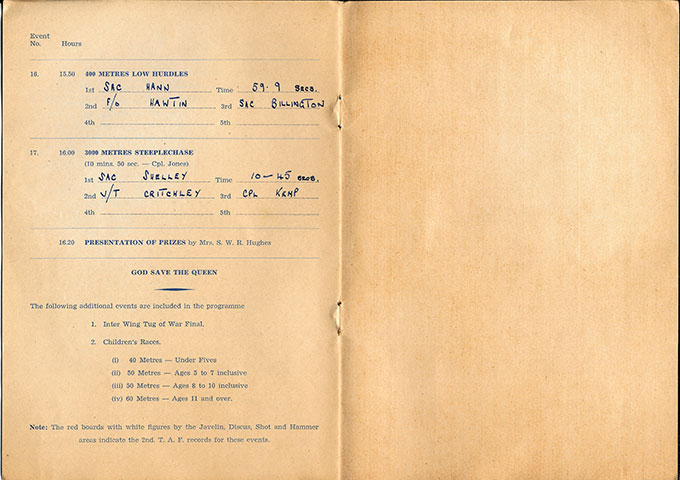 Event
No. Hours
16. 15.50 400 METRES LOW HURDLES
1st SAC HANN Time 59.9 SECS.
2nd F/O HAWTIN 3rd SAC BILLINGTON
4th 5th
17. 16.00 3000 METRES STEEPLECHASE
(10 mins. 50 sec. — Cpl. Jones)
1st SAC SHELLEY Time 10-45 SECS.
2nd J/T CRITCHLEY 3rd CPL KEMP
4th 5th
16.20 PRESENTATION OF PRIZES by Mrs. S. W. R. Hughes
GOD SAVE THE QUEEN
The following additional events are included in the programme
1. Inter Wing Tug of War Final.
2. Children's Races.
(i) 40 Metres — Under Fives
(ii) 50 Metres — Ages 5 to 7 inclusive
(iii) 50 Metres — Ages 8 to 10 inclusive
(iv) 60 Metres — Ages 11 and over.
Note: The red boards with white figures by the Javelin, Discus, Shot and Hammer
areas indicate the 2nd. T. A. F. records for these events.